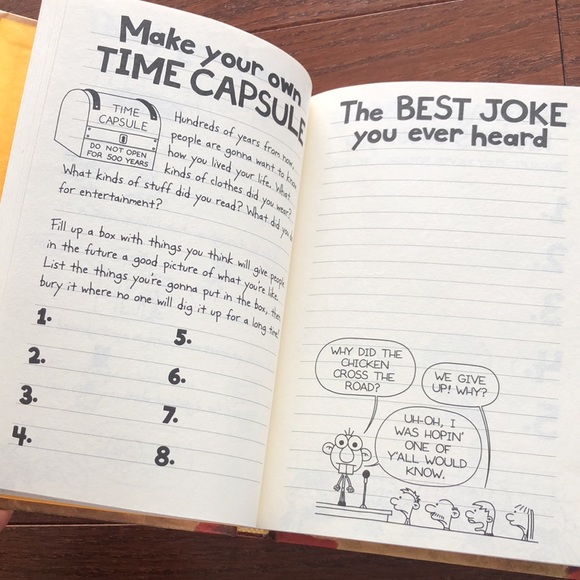 Make your own
TIME CAPSULE
TIME
CAPSULE
DO NOT OPEN
FOR 500 YEARS
Hundreds of years from now,
people are gonna want to know
how you lived your life. What
kinds of clothes did you wear?
What kinds of stuff did you read? What did you
for entertainment?
Fill up a box with things you think will give people
in the future a good picture of what you're like.
List the things you're gonna put in the box, then
bury it where no one will dig it up for a long time!
1.
2.
3.
4.
5.
6.
7.
8.
The BEST JOKE
you ever heard
WHY DID THE
CHICKEN
CROSS THE
ROAD?
WE GIVE
UP! WHY?
UH-OH, I
WAS HOPIN'
ONE OF
Y'ALL WOULD
KNOW.